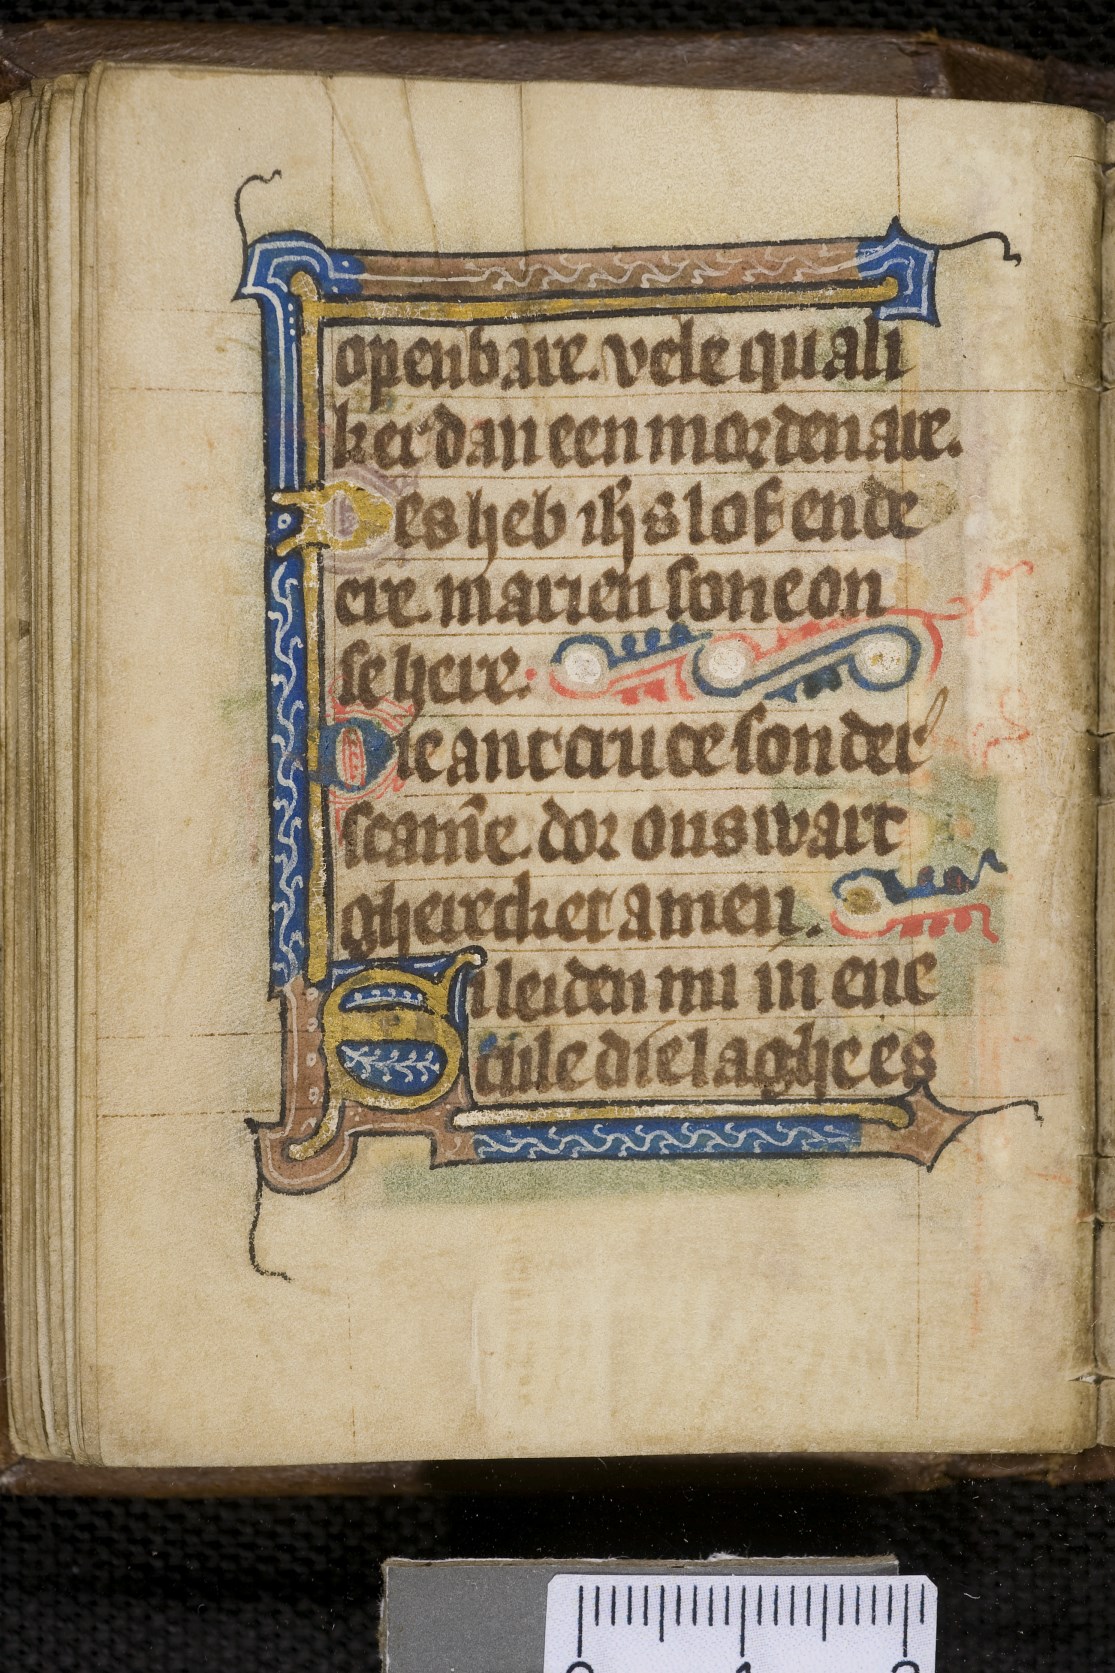 openbare. vele quali
ker dan een mordenare.
Des heb ih̄s lof ende
ere. marien sone on
se here.
Die ant cruce sonder
scam̄e. dor ons wart
gherecket amen.
Si leiden mi in ene
cule die laghe es
0 1 2